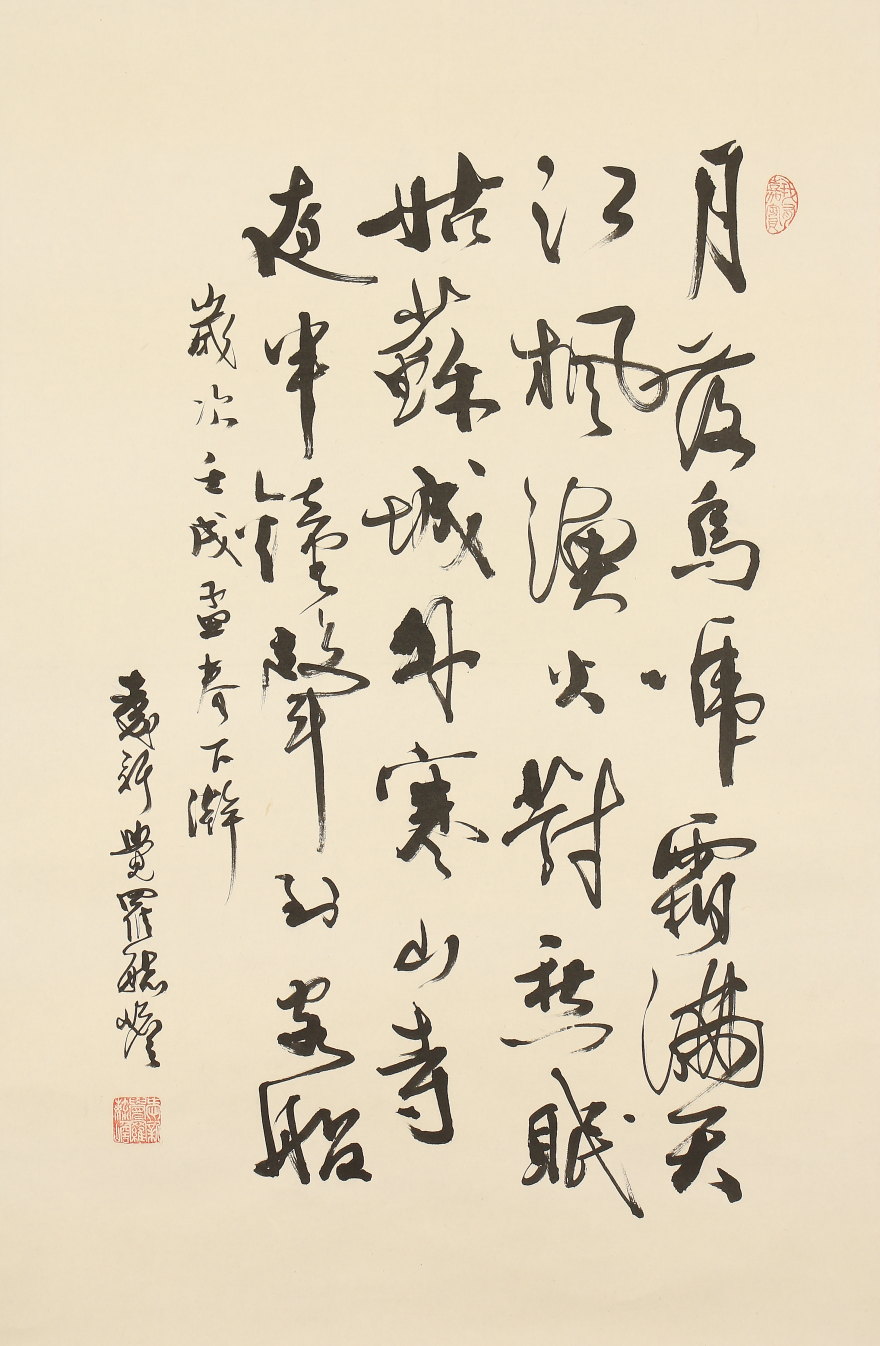 我有嘉賓
月落烏啼霜滿天
江楓漁火對愁眠
姑蘇城外寒山寺
夜半鐘聲到客船
歲次壬戌孟春下澣
愛新覺羅毓嶦
愛新覺羅毓嶦